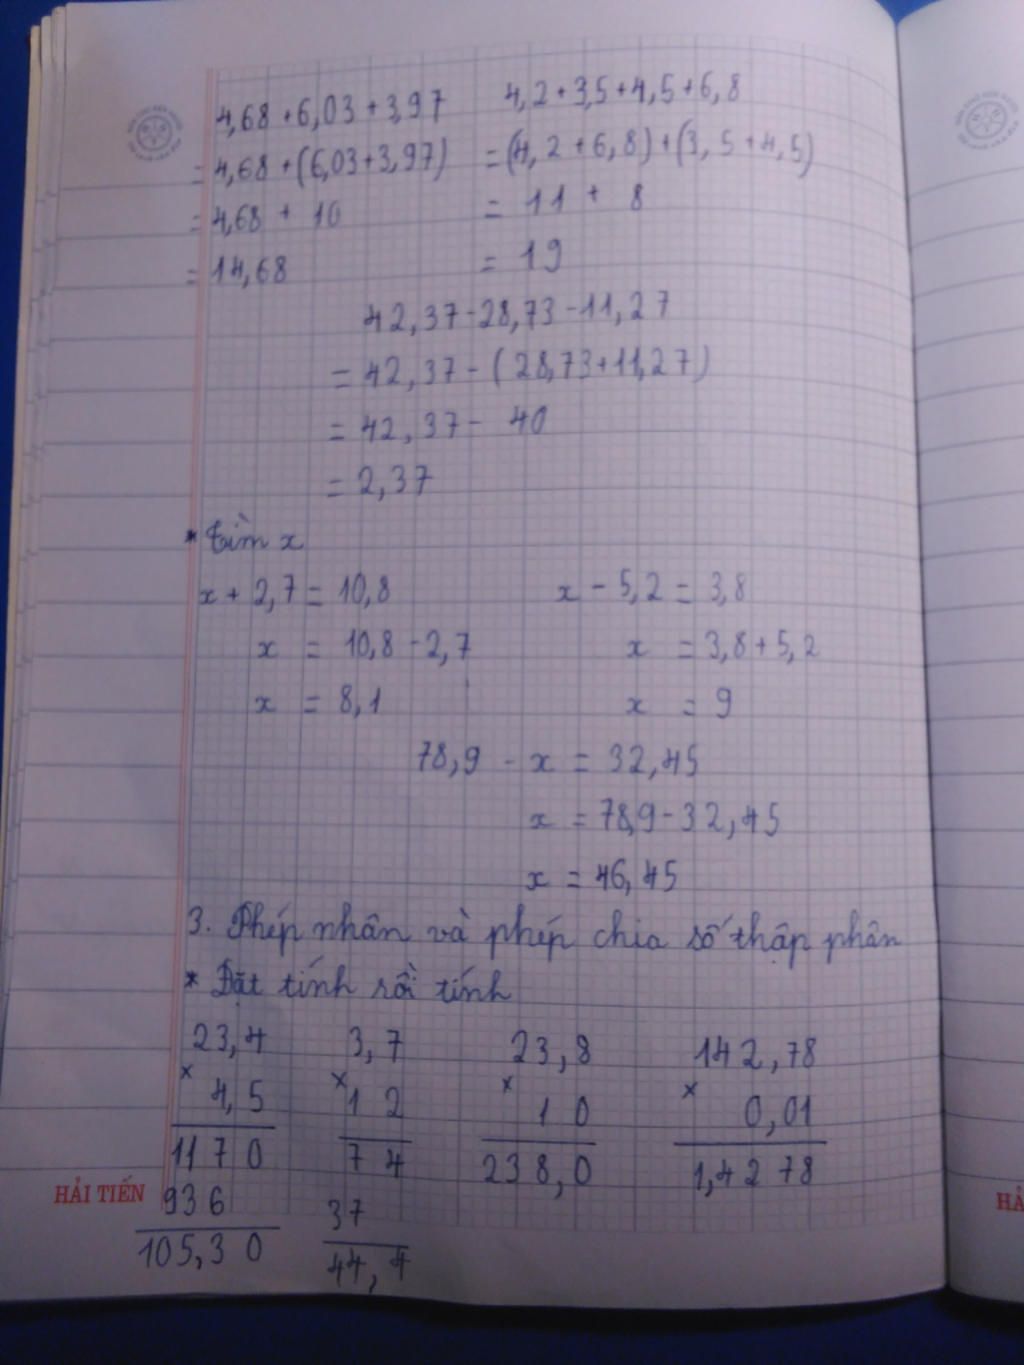 4,68 + 6,03 + 3,97    4,2 + 3,5 + 4,5 + 6,8
= 4,68 + (6,03 + 3,97)    = (4,2 + 6,8) + (3,5 + 4,5)
= 4,68 + 10    = 11 + 8
= 14,68    = 19
42,37 - 28,73 - 11,27
= 42,37 - (28,73 + 11,27)
= 42,37 - 40
= 2,37
* Tìm x
x + 2,7 = 10,8    x - 5,2 = 3,8
x = 10,8 - 2,7    x = 3,8 + 5,2
x = 8,1    x = 9
78,9 - x = 32,45
x = 78,9 - 32,45
x = 46,45
3. Phép nhân và phép chia số thập phân
* Đặt tính rồi tính
23,4    3,7    23,8    142,78
× 4,5    × 12    × 10    × 0,01
1170    74    238,0    1,4278
936    37
105,30    44,4
HẢI TIẾN
HẢ